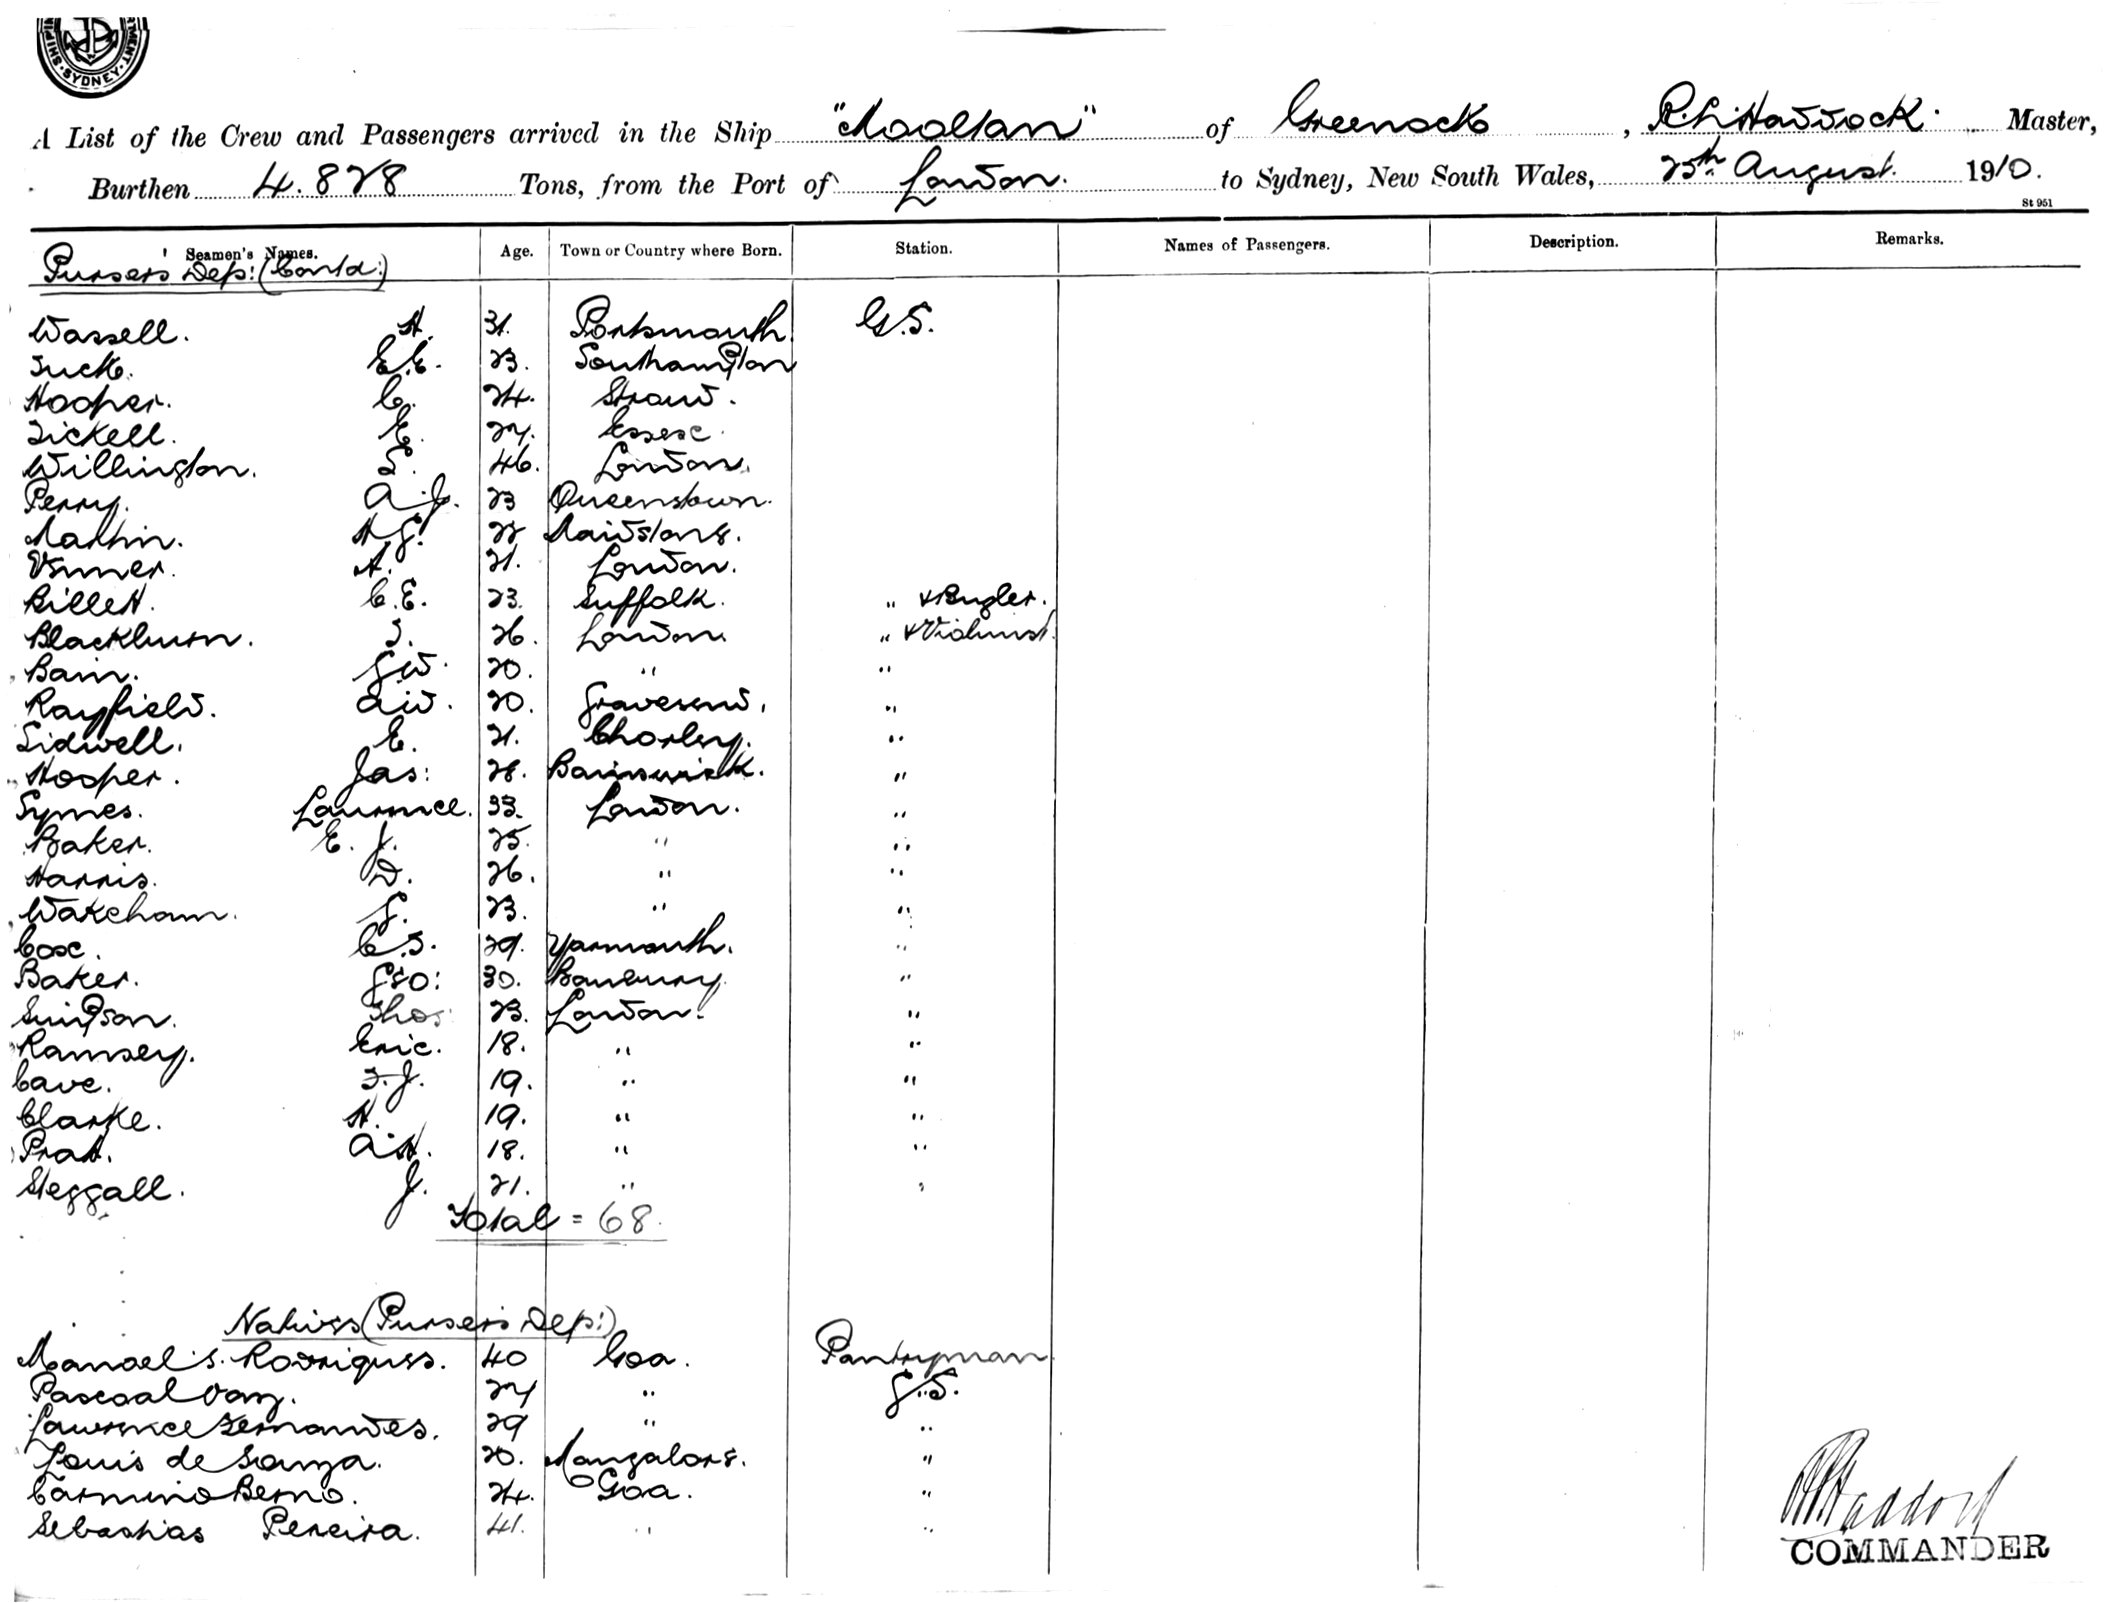 SHIPPING DEPARTMENT SYDNEY
A List of the Crew and Passengers arrived in the Ship "Mooltan" of Greenock, R. L. Haddock. Master,
Burthen 4.828 Tons, from the Port of London. to Sydney, New South Wales, 25th August. 1910.
St 951
Seamen's Names. Age. Town or Country where Born. Station. Names of Passengers. Description. Remarks.
Purser's Dep: (Contd:)
Wassell. H. 31. Portsmouth. G.S.
Tuck. E.E. 23. Southampton
Hooper. C. 24. Stroud.
Tickell. E. 27. Essex.
Willington. S. 46. London.
Perry. A.J. 23 Queenstown.
Martin. H.G. 22 Maidstone.
A. 21. London.
Billett. C.E. 23. Suffolk. " & Bugler.
Blackburn. T. 26. London. " & Violinist.
Bain. G.W. 20. " "
Rayfield. A.W. 20. Gravesend. "
Sidwell. E. 21. Chorley. "
Hooper. Jas: 28. "
Symes. Laurence. 33. London. "
Baker. E. J. 25. " "
Harris. D. 26. " "
Wakeham. G. 23. " "
Cox. C.S. 29. Yarmouth. "
Baker. Geo: 30. Banbury. "
Simpson. Thos: 23. London. "
Ramsey. Eric. 18. " "
Cave. F.J. 19. " "
Clarke. H. 19. " "
Pratt. A.H. 18. " "
Steggall. J. 21. " "
Total = 68.
Natives (Purser's Dep:)
Manoel S. Rodrigues. 40 Goa. Pantryman
Pascoal Vaz. 27 " G.S.
Lawrence Fernandes. 29 " "
Louis de Souza. 20. Mangalore. "
Carmino 24. Goa. "
Sebastias Pereira. 41. " "
R L Haddock
COMMANDER